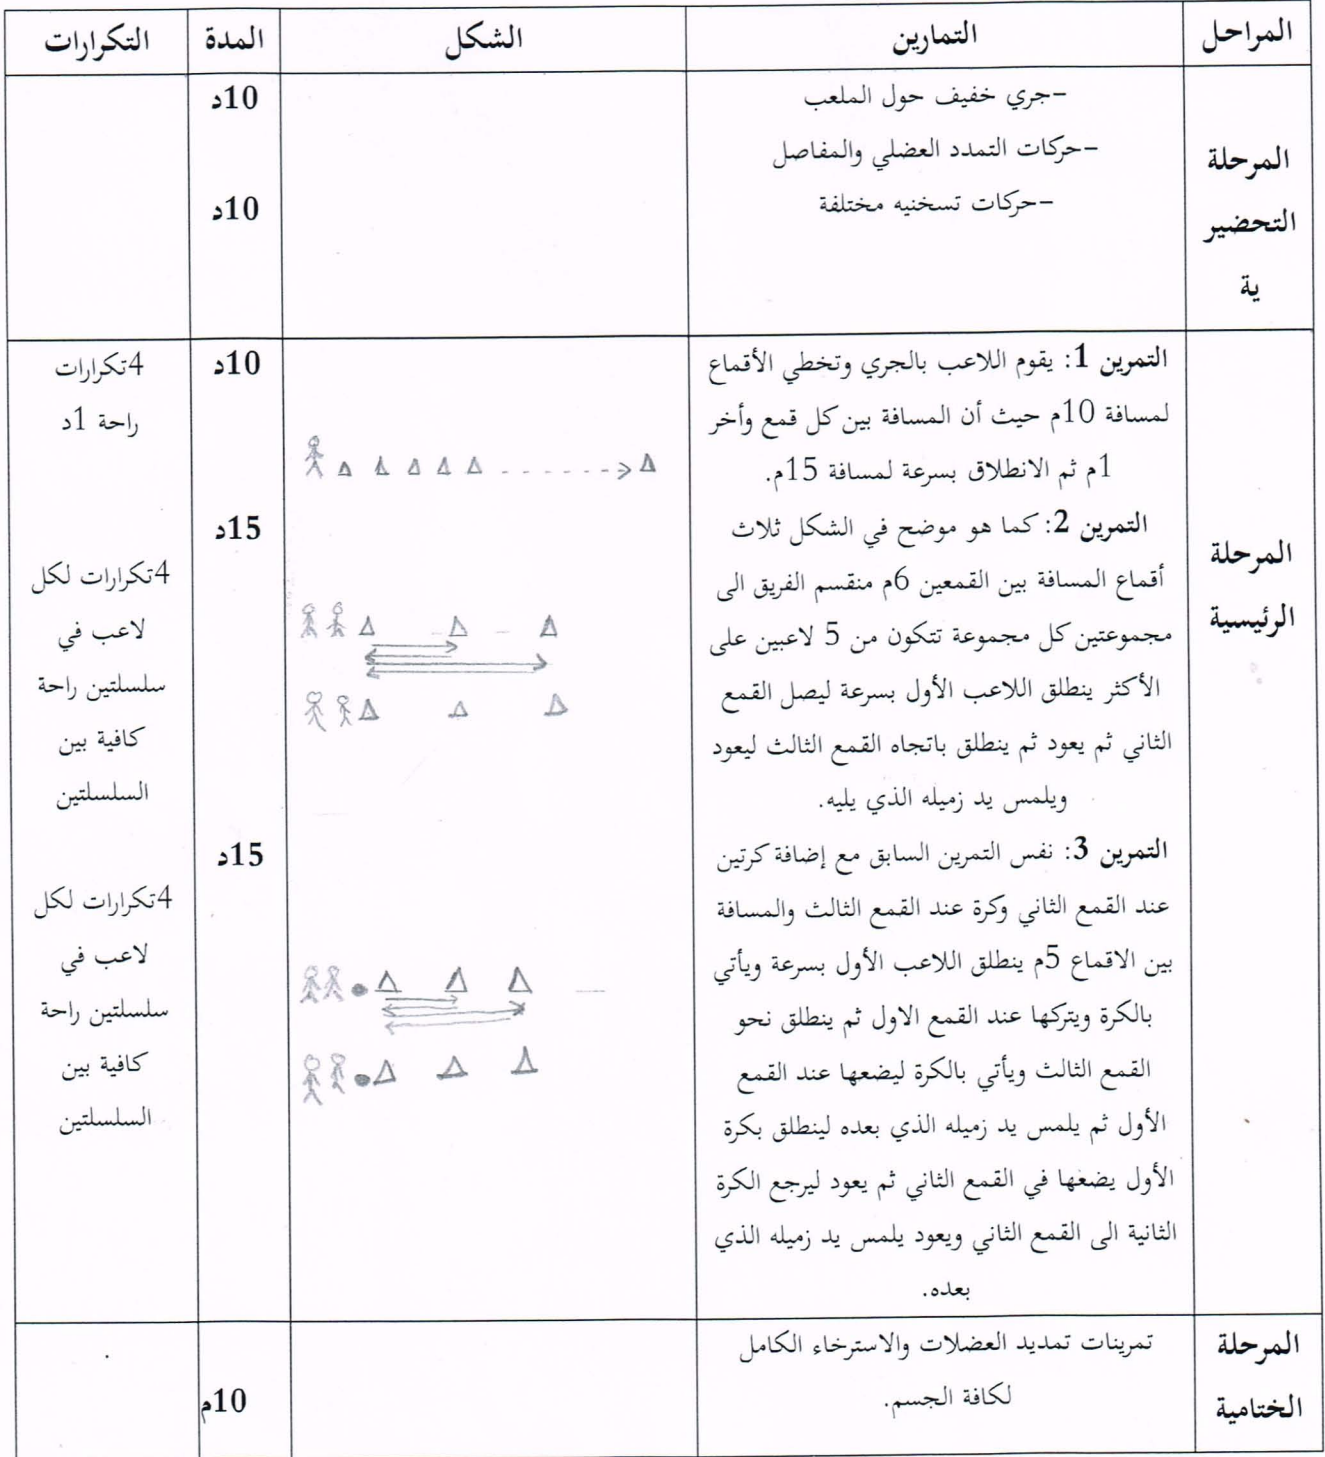 المراحل	التمارين	الشكل	المدة	التكرارات
المرحلة
التحضير
ية
-جري خفيف حول الملعب
-حركات التمدد العضلي والمفاصل
-حركات تسخنيه مختلفة
10د
10د
المرحلة
الرئيسية
التمرين 1: يقوم اللاعب بالجري وتخطي الأقماع
لمسافة 10م حيث أن المسافة بين كل قمع وأخر
1م ثم الانطلاق بسرعة لمسافة 15م.
التمرين 2: كما هو موضح في الشكل ثلاث
أقماع المسافة بين القمعين 6م منقسم الفريق الى
مجموعتين كل مجموعة تتكون من 5 لاعبين على
الأكثر ينطلق اللاعب الأول بسرعة ليصل القمع
الثاني ثم يعود ثم ينطلق باتجاه القمع الثالث ليعود
ويلمس يد زميله الذي يليه.
التمرين 3: نفس التمرين السابق مع إضافة كرتين
عند القمع الثاني وكرة عند القمع الثالث والمسافة
بين الاقماع 5م ينطلق اللاعب الأول بسرعة ويأتي
بالكرة ويتركها عند القمع الاول ثم ينطلق نحو
القمع الثالث ويأتي بالكرة ليضعها عند القمع
الأول ثم يلمس يد زميله الذي بعده لينطلق بكرة
الأول يضعها في القمع الثاني ثم يعود ليرجع الكرة
الثانية الى القمع الثاني ويعود يلمس يد زميله الذي
بعده.
10د
15د
15د
4تكرارات
راحة 1د
4تكرارات لكل
لاعب في
سلسلتين راحة
كافية بين
السلسلتين
4تكرارات لكل
لاعب في
سلسلتين راحة
كافية بين
السلسلتين
المرحلة
الختامية
تمرينات تمديد العضلات والاسترخاء الكامل
لكافة الجسم.
10م